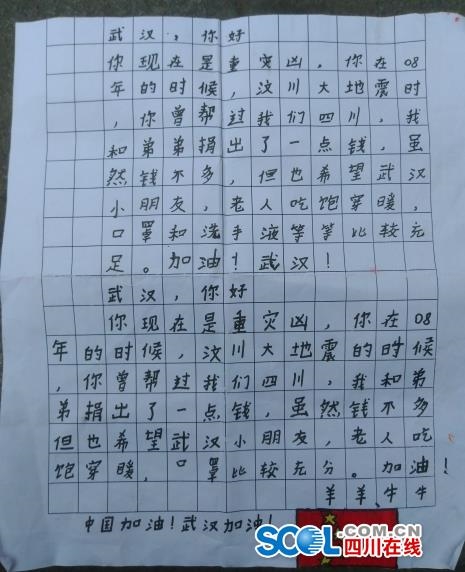 武汉，你好
你现在是重灾凶，你在08
年的时候，汶川大地震时
，你曾帮过我们四川，我
和弟弟捐出了一点钱，虽
然钱不多，但也希望武汉
小朋友，老人吃饱穿暖，
口罩和洗手液等等比较充
足。加油！武汉！
武汉，你好
你现在是重灾凶，你在08
年的时候，汶川大地震的时候
，你曾帮过我们四川，我和弟
弟捐出了一点钱，虽然钱不多
但也希望武汉小朋友，老人吃
饱穿暖，口罩比较充分。加油！
羊羊、牛牛
中国加油！武汉加油！
SCOL.COM.CN
四川在线